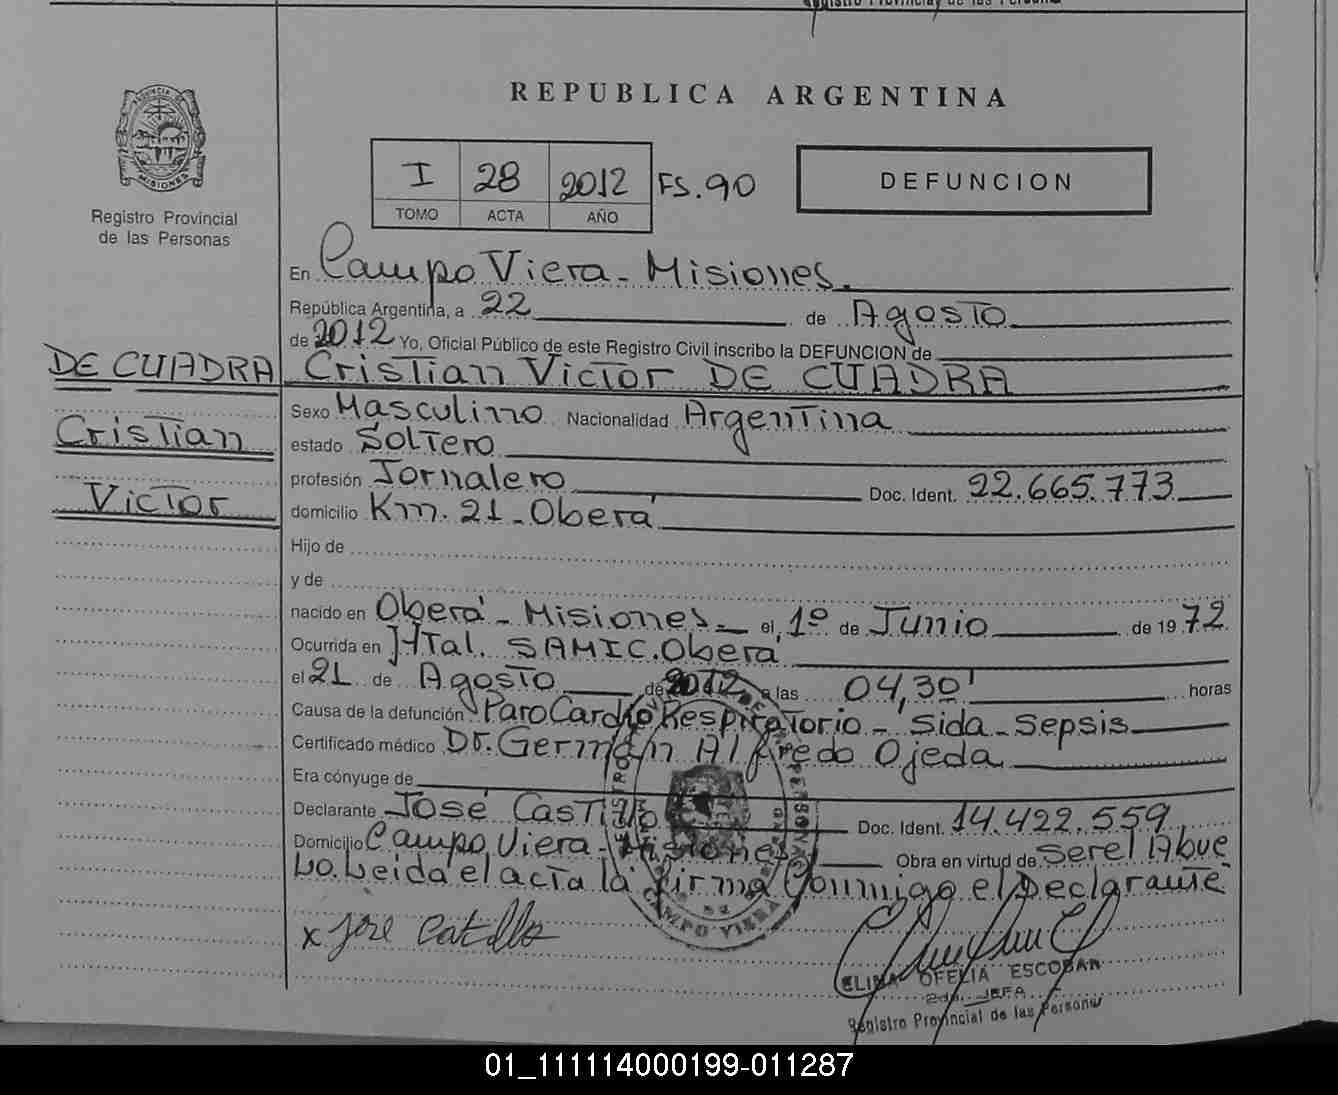 Registro Provincial de las Personas
PROVINCIA DE
MISIONES
Registro Provincial
de las Personas
REPUBLICA ARGENTINA
I 28 2012 FS. 90
TOMO ACTA AÑO
DEFUNCION
En Campo Viera - Misiones.
República Argentina, a 22 de Agosto
de 2012 Yo, Oficial Público de este Registro Civil inscribo la DEFUNCION de
DE CUADRA Cristian Victor DE CUADRA
Sexo Masculino Nacionalidad Argentina
Cristian
estado Soltero
profesión Jornalero Doc. Ident. 22.665.773
Victor
domicilio Km. 21 - Oberá
Hijo de
y de
nacido en Oberá - Misiones el 1º de Junio de 1972
Ocurrida en HTal. SAMIC. Oberá
el 21 de Agosto de 2012 a las 04,30' horas
Causa de la defunción Paro Cardio Respiratorio - Sida - Sepsis
Certificado médico Dr. Germán Alfredo Ojeda
Era cónyuge de
Declarante José Castillo Doc. Ident. 14.422.559
Domicilio Campo Viera - Misiones Obra en virtud de Ser el Abue
lo. Leida el acta la firma Conmigo el Declarante
CAMPO VIERA
x Jose Catillo
ELINA OFELIA ESCOBAR
2da. JEFA
Registro Provincial de las Personas
01_111114000199-011287